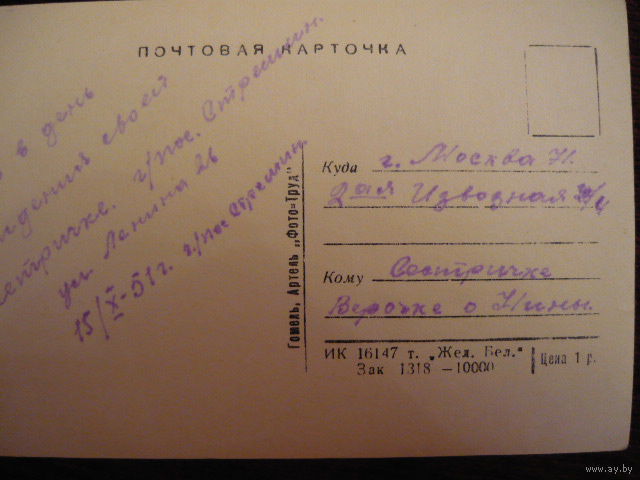 ПОЧТОВАЯ КАРТОЧКА
в день
своей
сестричке. г/пос. Стрешин.
ул. Ленина 26
15/X-51 г. г/пос Стрешин.
Гомель, Артель „Фото=Труд"
Куда г. Москва 71.
2ая Изводная
Кому Сестричке
Верочке о Нины.
ИК 16147 т. „Жел. Бел."
Зак 1318 —10000
Цена 1 р.
www.ay.by